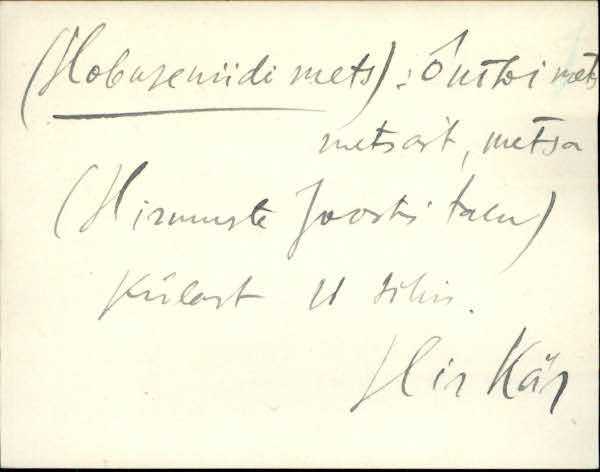 (Hobuseniidi mets): Õnttoi mets
metsast, metsa
(Hirmuste Joosti talu)
külast U
Hir Kär